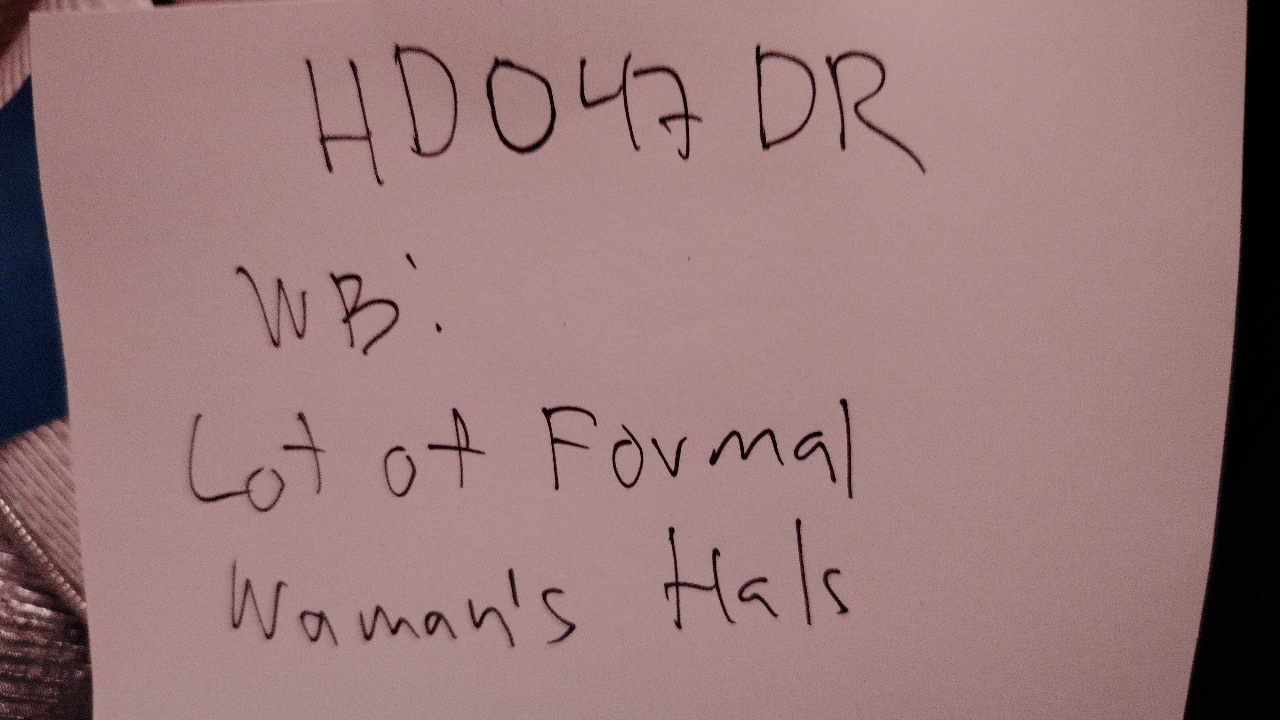 HD047 DR
WB:
Lot of Formal
Waman's Hals